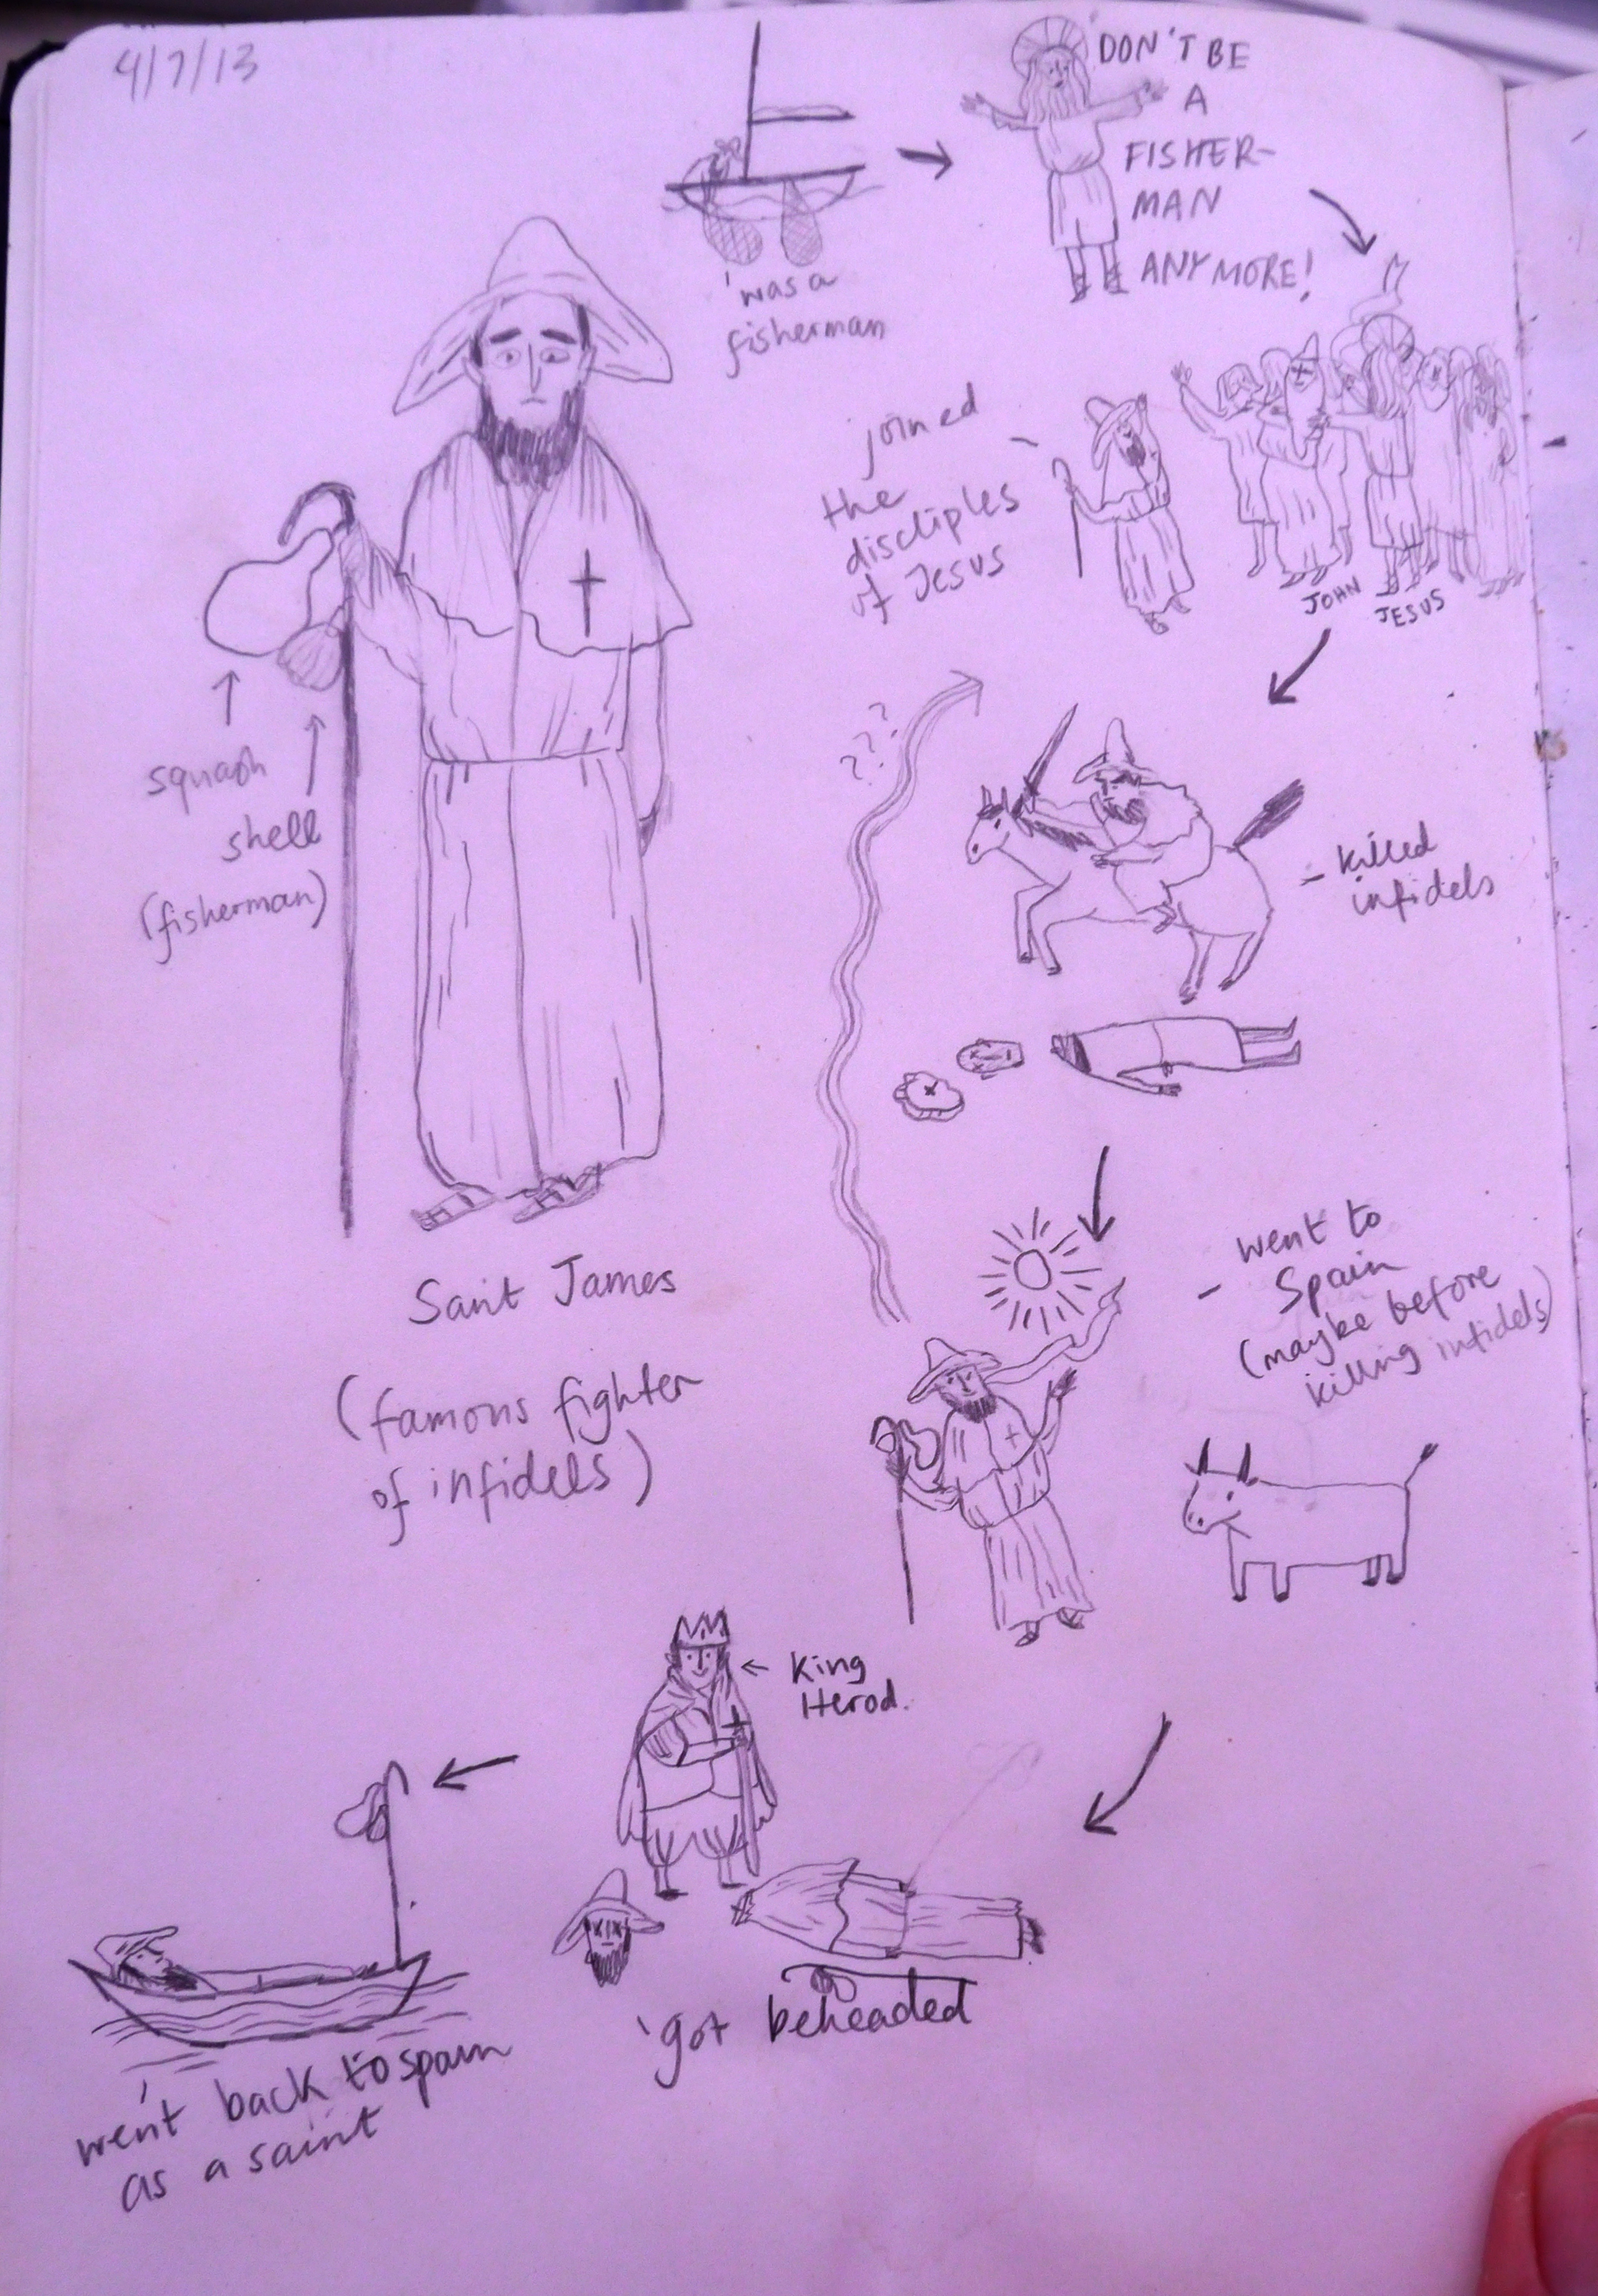 4/7/13
'was a
fisherman
DON'T BE
A
FISHER-
MAN
ANYMORE!
joined
the
discliples
of Jesus
JOHN
JESUS
squash
shell
(fisherman)
???
- killed
infidels
Saint James
(famous fighter
of infidels)
- went to
Spain
(maybe before
killing infidels)
King
Herod.
'got beheaded
went back to spain
as a saint